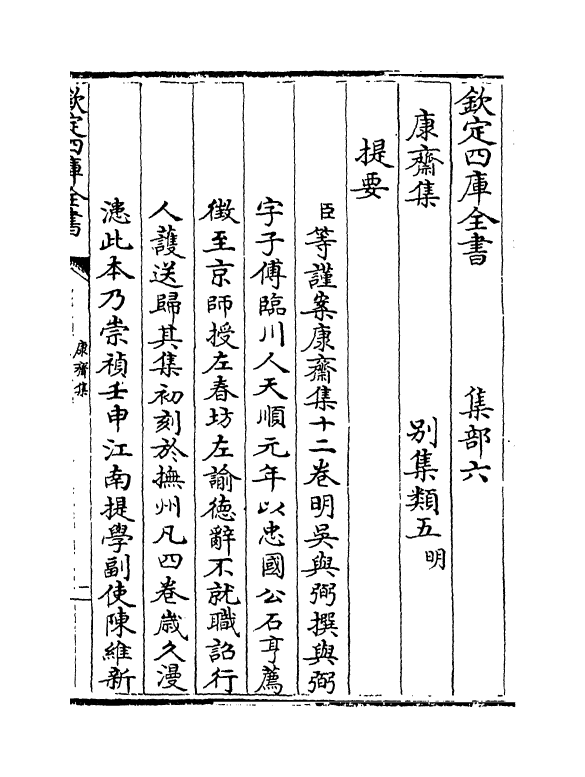 欽定四庫全書　集部六
康齋集　別集類五明
提要
臣等謹案康齋集十二卷明吳與弼撰與弼
字子傅臨川人天順元年以忠國公石亨薦
徵至京師授左春坊左諭德辭不就職詔行
人護送歸其集初刻於撫州凡四卷歲久漫
漶此本乃崇禎壬申江南提學副使陳維新
欽定四庫全書
康齋集
一